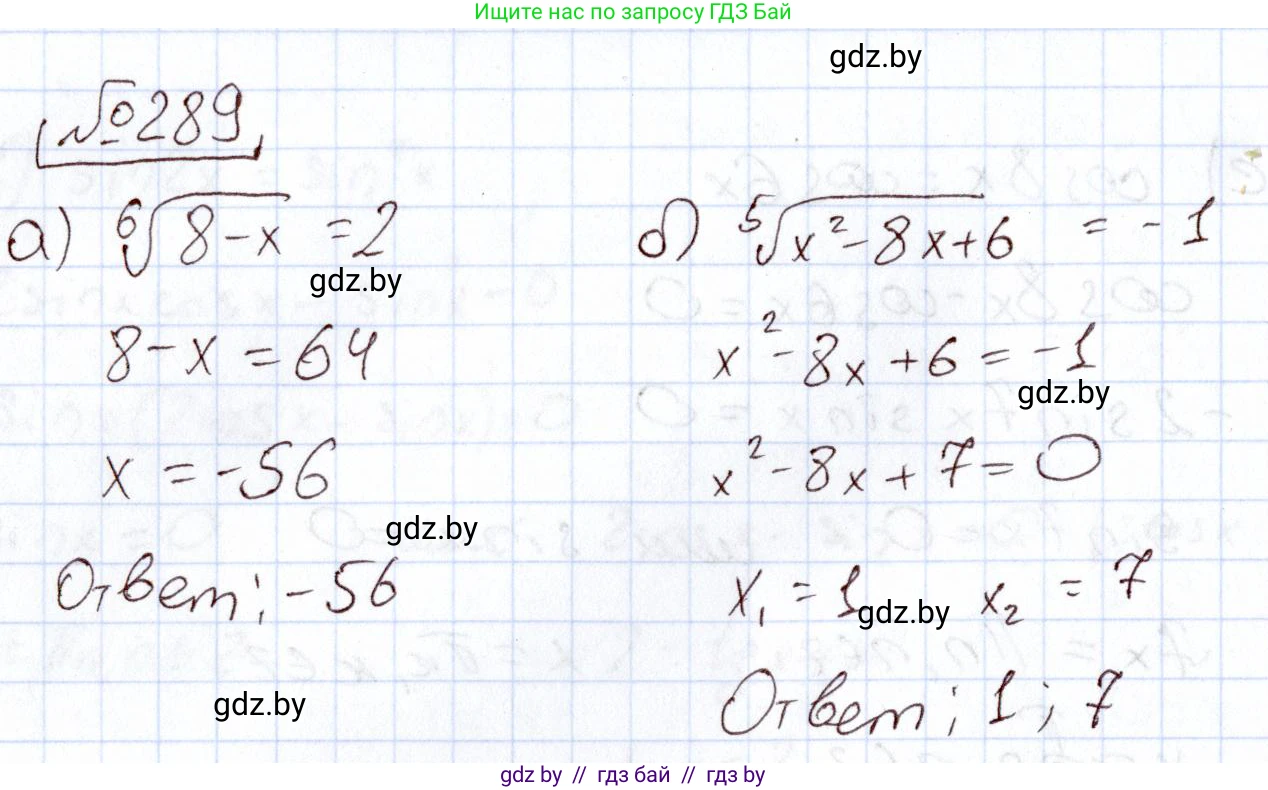 Ищите нас по запросу ГДЗ Бай
gdz.by
№289
а) ⁶√(8-x) = 2
gdz.by
8-x = 64
x = -56
gdz.by
Ответ: -56
gdz.by
б) ⁵√(x²-8x+6) = -1
x²-8x+6 = -1
gdz.by
x²-8x+7 = 0
x₁ = 1 gdz.by x₂ = 7
Ответ: 1; 7
gdz by // гдз бай // гдз by